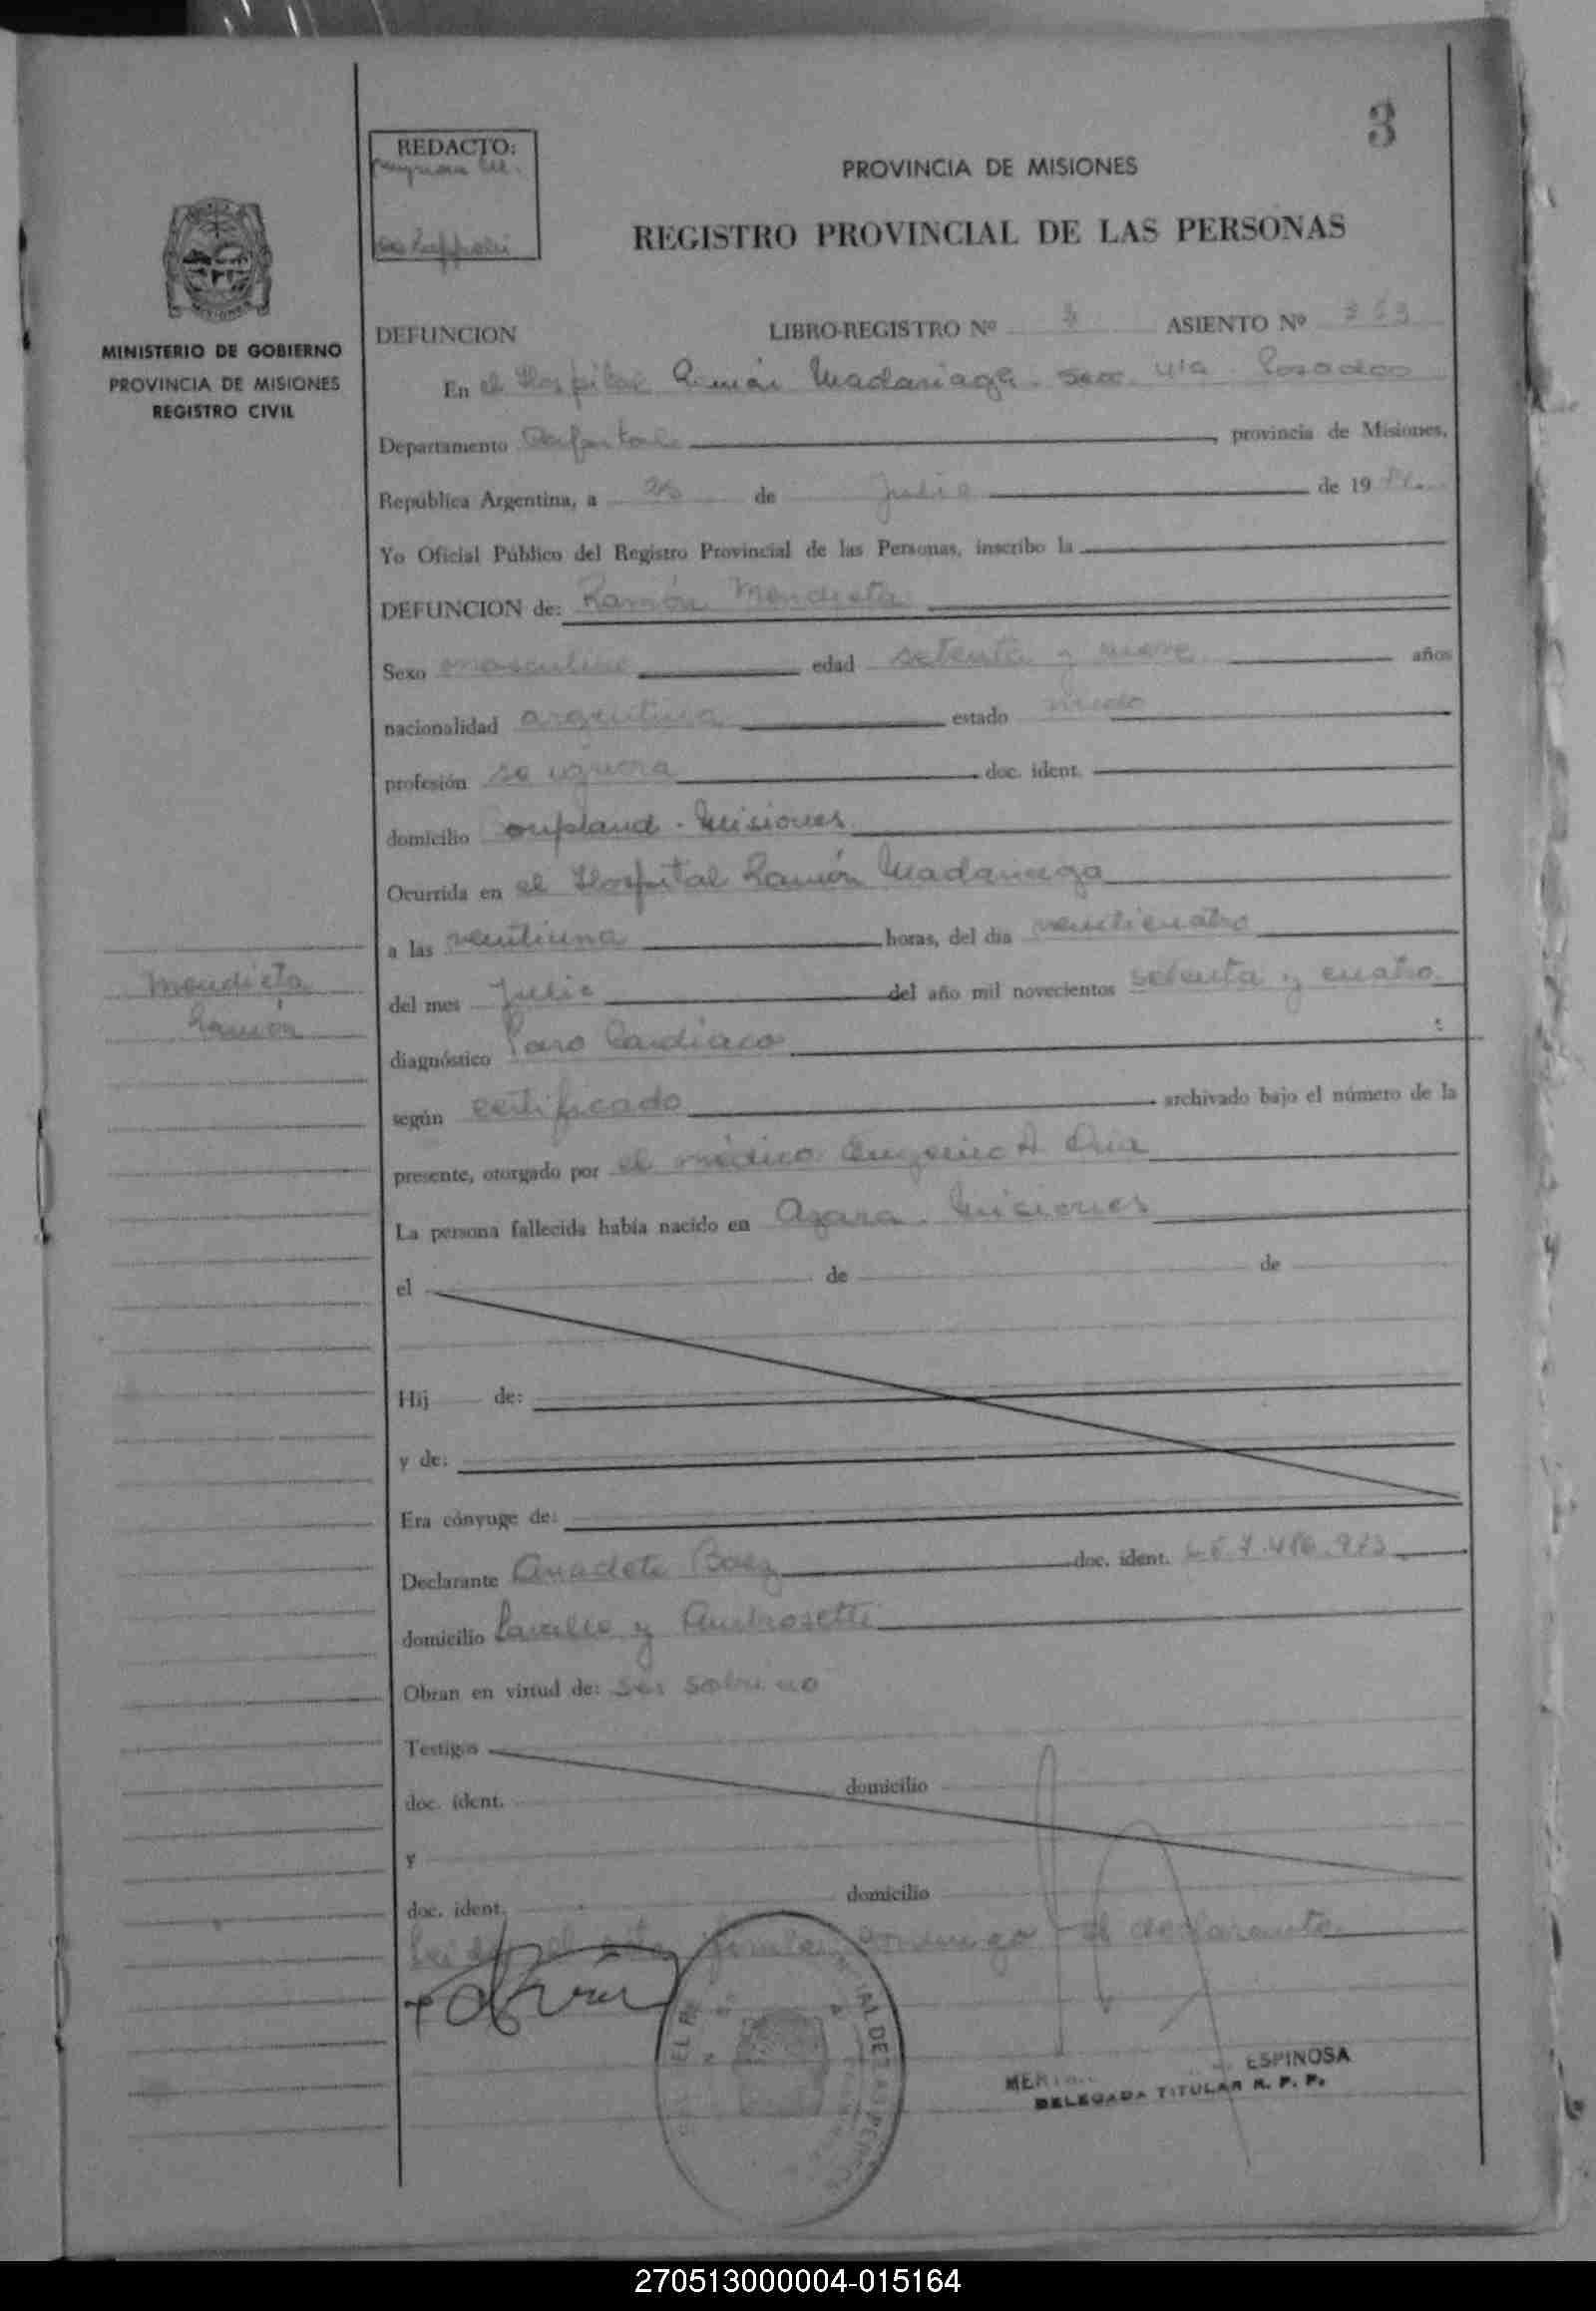 3
REDACTO:
PROVINCIA DE MISIONES
REGISTRO PROVINCIAL DE LAS PERSONAS
MINISTERIO DE GOBIERNO
PROVINCIA DE MISIONES
REGISTRO CIVIL
DEFUNCION LIBRO-REGISTRO Nº ASIENTO Nº
En el Hospital Ramón Madariaga - Sec. 4ta Posadas
Departamento provincia de Misiones,
República Argentina, a 25 de Julio de 19
Yo Oficial Público del Registro Provincial de las Personas, inscribo la
DEFUNCION de: Ramón Mendieta
Sexo masculino edad setenta y nueve años
nacionalidad argentina estado
profesión se ignora doc. ident.
domicilio - Misiones
Ocurrida en el Hospital Ramón Madariaga
a las veintiuna horas, del día veinticuatro
Mendieta
Ramón
del mes Julio del año mil novecientos setenta y cuatro
diagnóstico Paro Cardiaco
según certificado archivado bajo el número de la
presente, otorgado por el médico Eugenio A
La persona fallecida había nacido en Azara - Misiones
el de de
Hij de:
y de:
Era cónyuge de:
Declarante Anacleto Baez doc. ident.
domicilio Lavalle y Ambrosetti
Obran en virtud de: ser sobrino
Testigos
doc. ident. domicilio
y
doc. ident. domicilio
Leida el acta firman conmigo el declarante
ESPINOSA
DELEGADA TITULAR R. P. P.
270513000004-015164